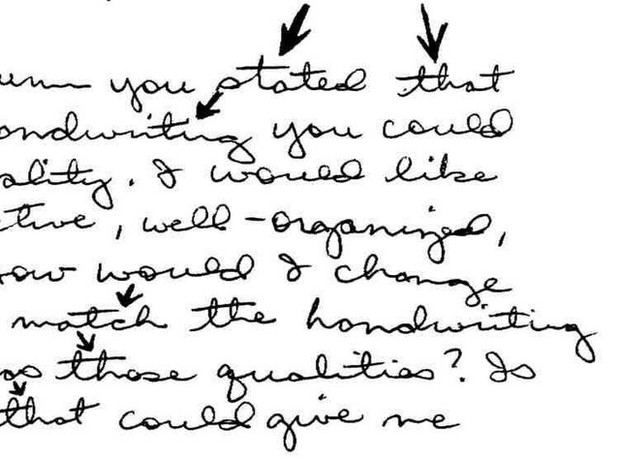 you stated that
you could
I would like
, well-organized,
would I change
match the handwriting
those qualities? Is
that could give me